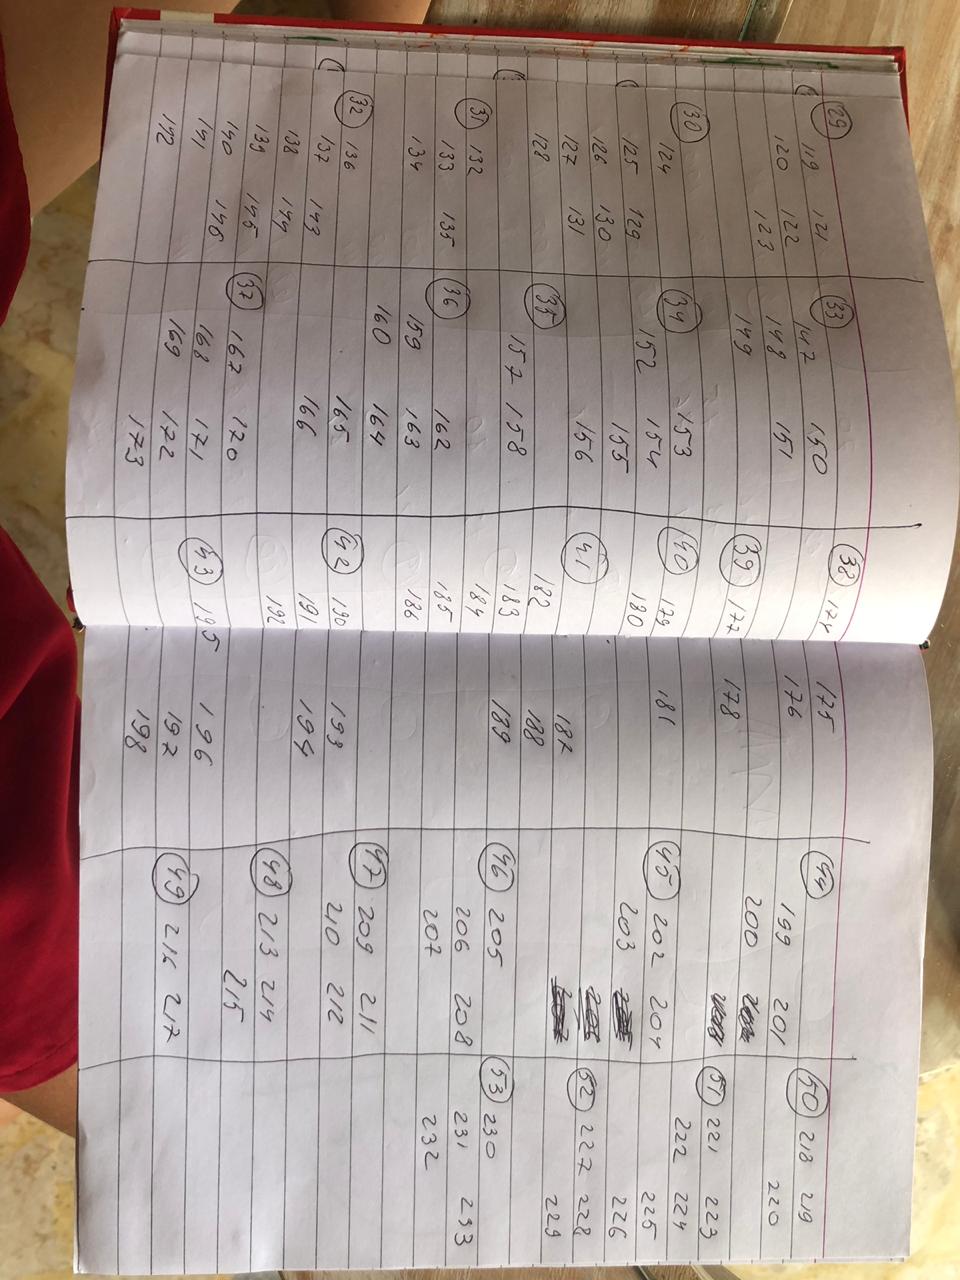 29
119 121
120 122
123
30
124
125 129
126 130
127 131
128
31 132
133 135
134
32 136
137 143
138 144
139 145
140 146
141
142
33
147 150
148 151
149
34 153
152 154
155
156
35
157 158
36 162
159 163
160 164
165
166
37 167 170
168 171
169 172
173
38 174 175
176
39 177 178
40 179 181
180
41
182 187
183 188
184 189
185
186
42 190 193
191 194
192
43 195 196
197
198
44
199 201
200
45 202 204
203
46 205
206 208
207
47 209 211
210 212
48 213 214
215
49 216 217
50 218 219
220
51 221 223
222 224
225
226
52 227 228
229
53 230
231 233
232